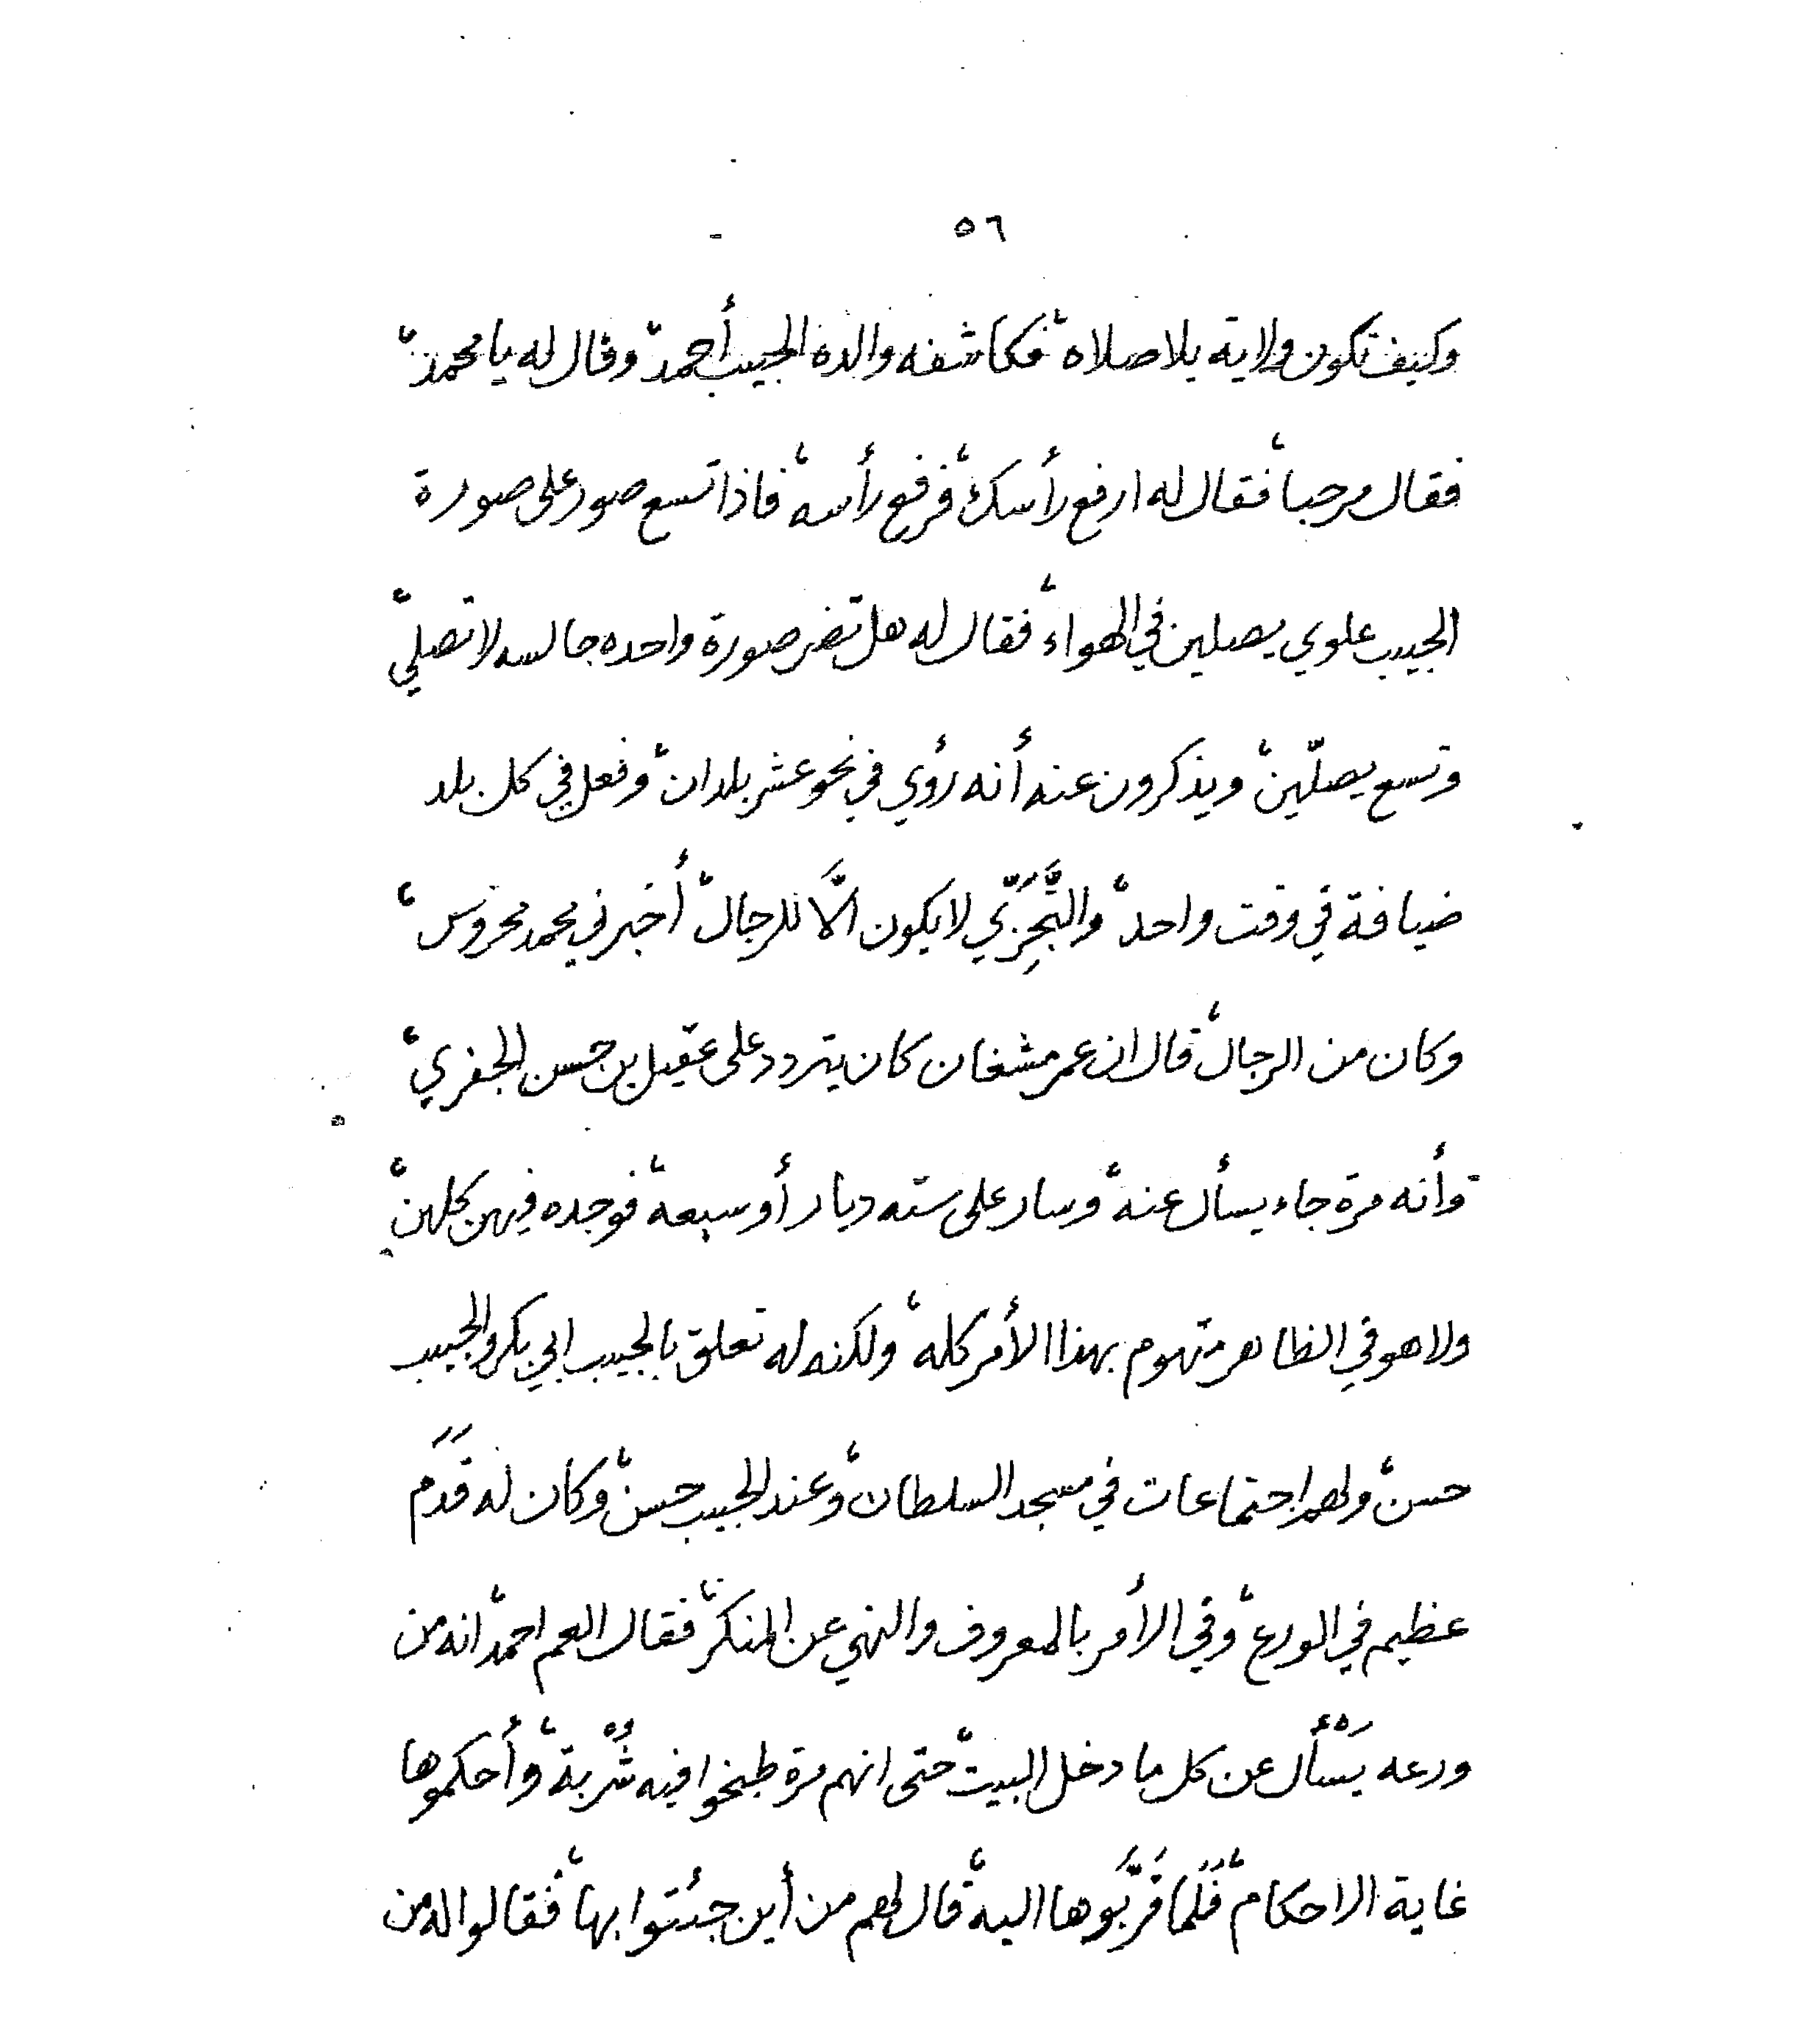 ٥٦
وكيف تكون ولاية بلا صلاه، فكاشفه والده الحبيب أحمد، وقال له يا محمد،
فقال مرحبا، فقال له ارفع رأسك، فرفع رأسه، فاذا تسع صور على صورة
الحبيب علوي يصلين في الهواء، فقال له هل تضر صورة واحده جالسه لا تصلي،
وتسع يصلّين، ويذكرون عنه أنه رؤي في نحو عشر بلدان، وفعل في كل بلد
ضيافة في وقت واحد، والتَّجَزِّي لا يكون الَّا للرجال، أخبرني محمد محروس،
وكان من الرجال، قال ان عمر مشغان كان يتردد على عقيل بن حسن الجفري،
وأنه مرة جاء يسأل عنه، وسار على سته ديار أو سبعة، فوجده فيهن كلهن،
ولا هو في الظاهر متهوم بهذا الأمر كله، ولكنه له تعلق بالحبيب ابي بكر والحبيب
حسن، ولهم اجتماعات في مسجد السلطان، وعند الحبيب حسن، وكان له قَدَم
عظيم في الورع، وفي الأمر بالمعروف والنهي عن المنكر، فقال العم احمد، انه من
ورعه يَسْأل عن كل ما دخل البيت، حتى انهم مرة طبخوا فيه شُرْبة، وأحكموها
غاية الاحكام، فَلَما قَرَّبُوها اليه، قال لهم من أين جئتوا بها، فقالوا له من